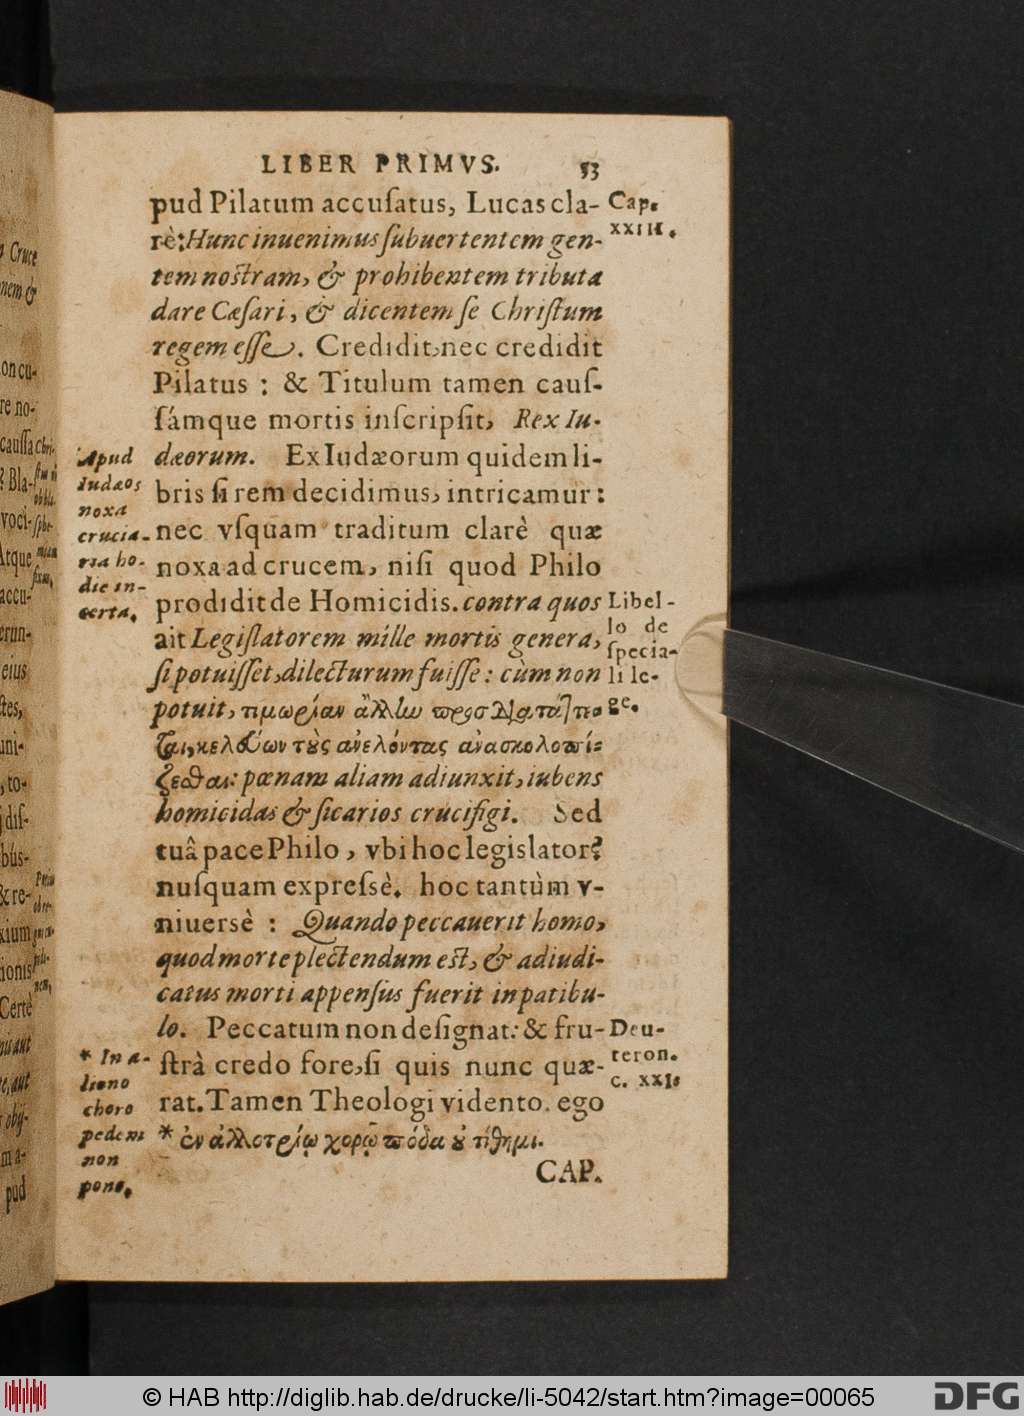 LIBER PRIMVS. 53
pud Pilatum accuſatus, Lucas cla-
rè: Hunc inuenimus ſubuertentem gen-
tem noſtram, & prohibentem tributa
dare Cæſari, & dicentem ſe Chriſtum
regem eſſe. Credidit, nec credidit
Pilatus : & Titulum tamen cauſ-
ſámque mortis inſcripſit, Rex Iu-
dæorum. Ex Iudæorum quidem li-
bris ſi rem decidimus, intricamur:
nec vſquam traditum clarè quæ
noxa ad crucem, niſi quod Philo
prodidit de Homicidis. contra quos
ait Legiſlatorem mille mortis genera,
ſi potuiſſet, dilecturum fuiſſe: cùm non
potuit, τιμωρίαν ἄλλην προσδιατάττε-
ται, κελεύων τοὺς ἀνελόντας ἀνασκολοπί-
ζεσθαι: pœnam aliam adiunxit, iubens
homicidas & ſicarios crucifigi. Sed
tuâ pace Philo, vbi hoc legislator?
nuſquam expreſsè. hoc tantùm v-
niuersè : Quando peccauerit homo,
quod morte plectendum eſt, & adiudi-
catus morti appenſus fuerit in patibu-
lo. Peccatum non deſignat: & fru-
ſtrà credo fore, ſi quis nunc quæ-
rat. Tamen Theologi vidento. ego
* ἐν ἀλλοτρίῳ χορῷ πόδα οὐ τίθημι.
CAP.
Cap.
XXIII.
Apud
Iudæos
noxa
crucia-
ria ho-
die in-
certa.
Libel-
lo de
ſpecia-
li le-
ge.
Deu-
teron.
c. XXI.
* In a-
lieno
choro
pedem
non
pono.
Cruce
nem &
on cu-
re no-
cauſſa
? Bla-
voci-
Atque
accu-
erun-
eius
uni-
, to-
diſ-
bús-
& re-
xium
ionis
Certè
obij-
m a-
pud
© HAB http://diglib.hab.de/drucke/li-5042/start.htm?image=00065
DFG